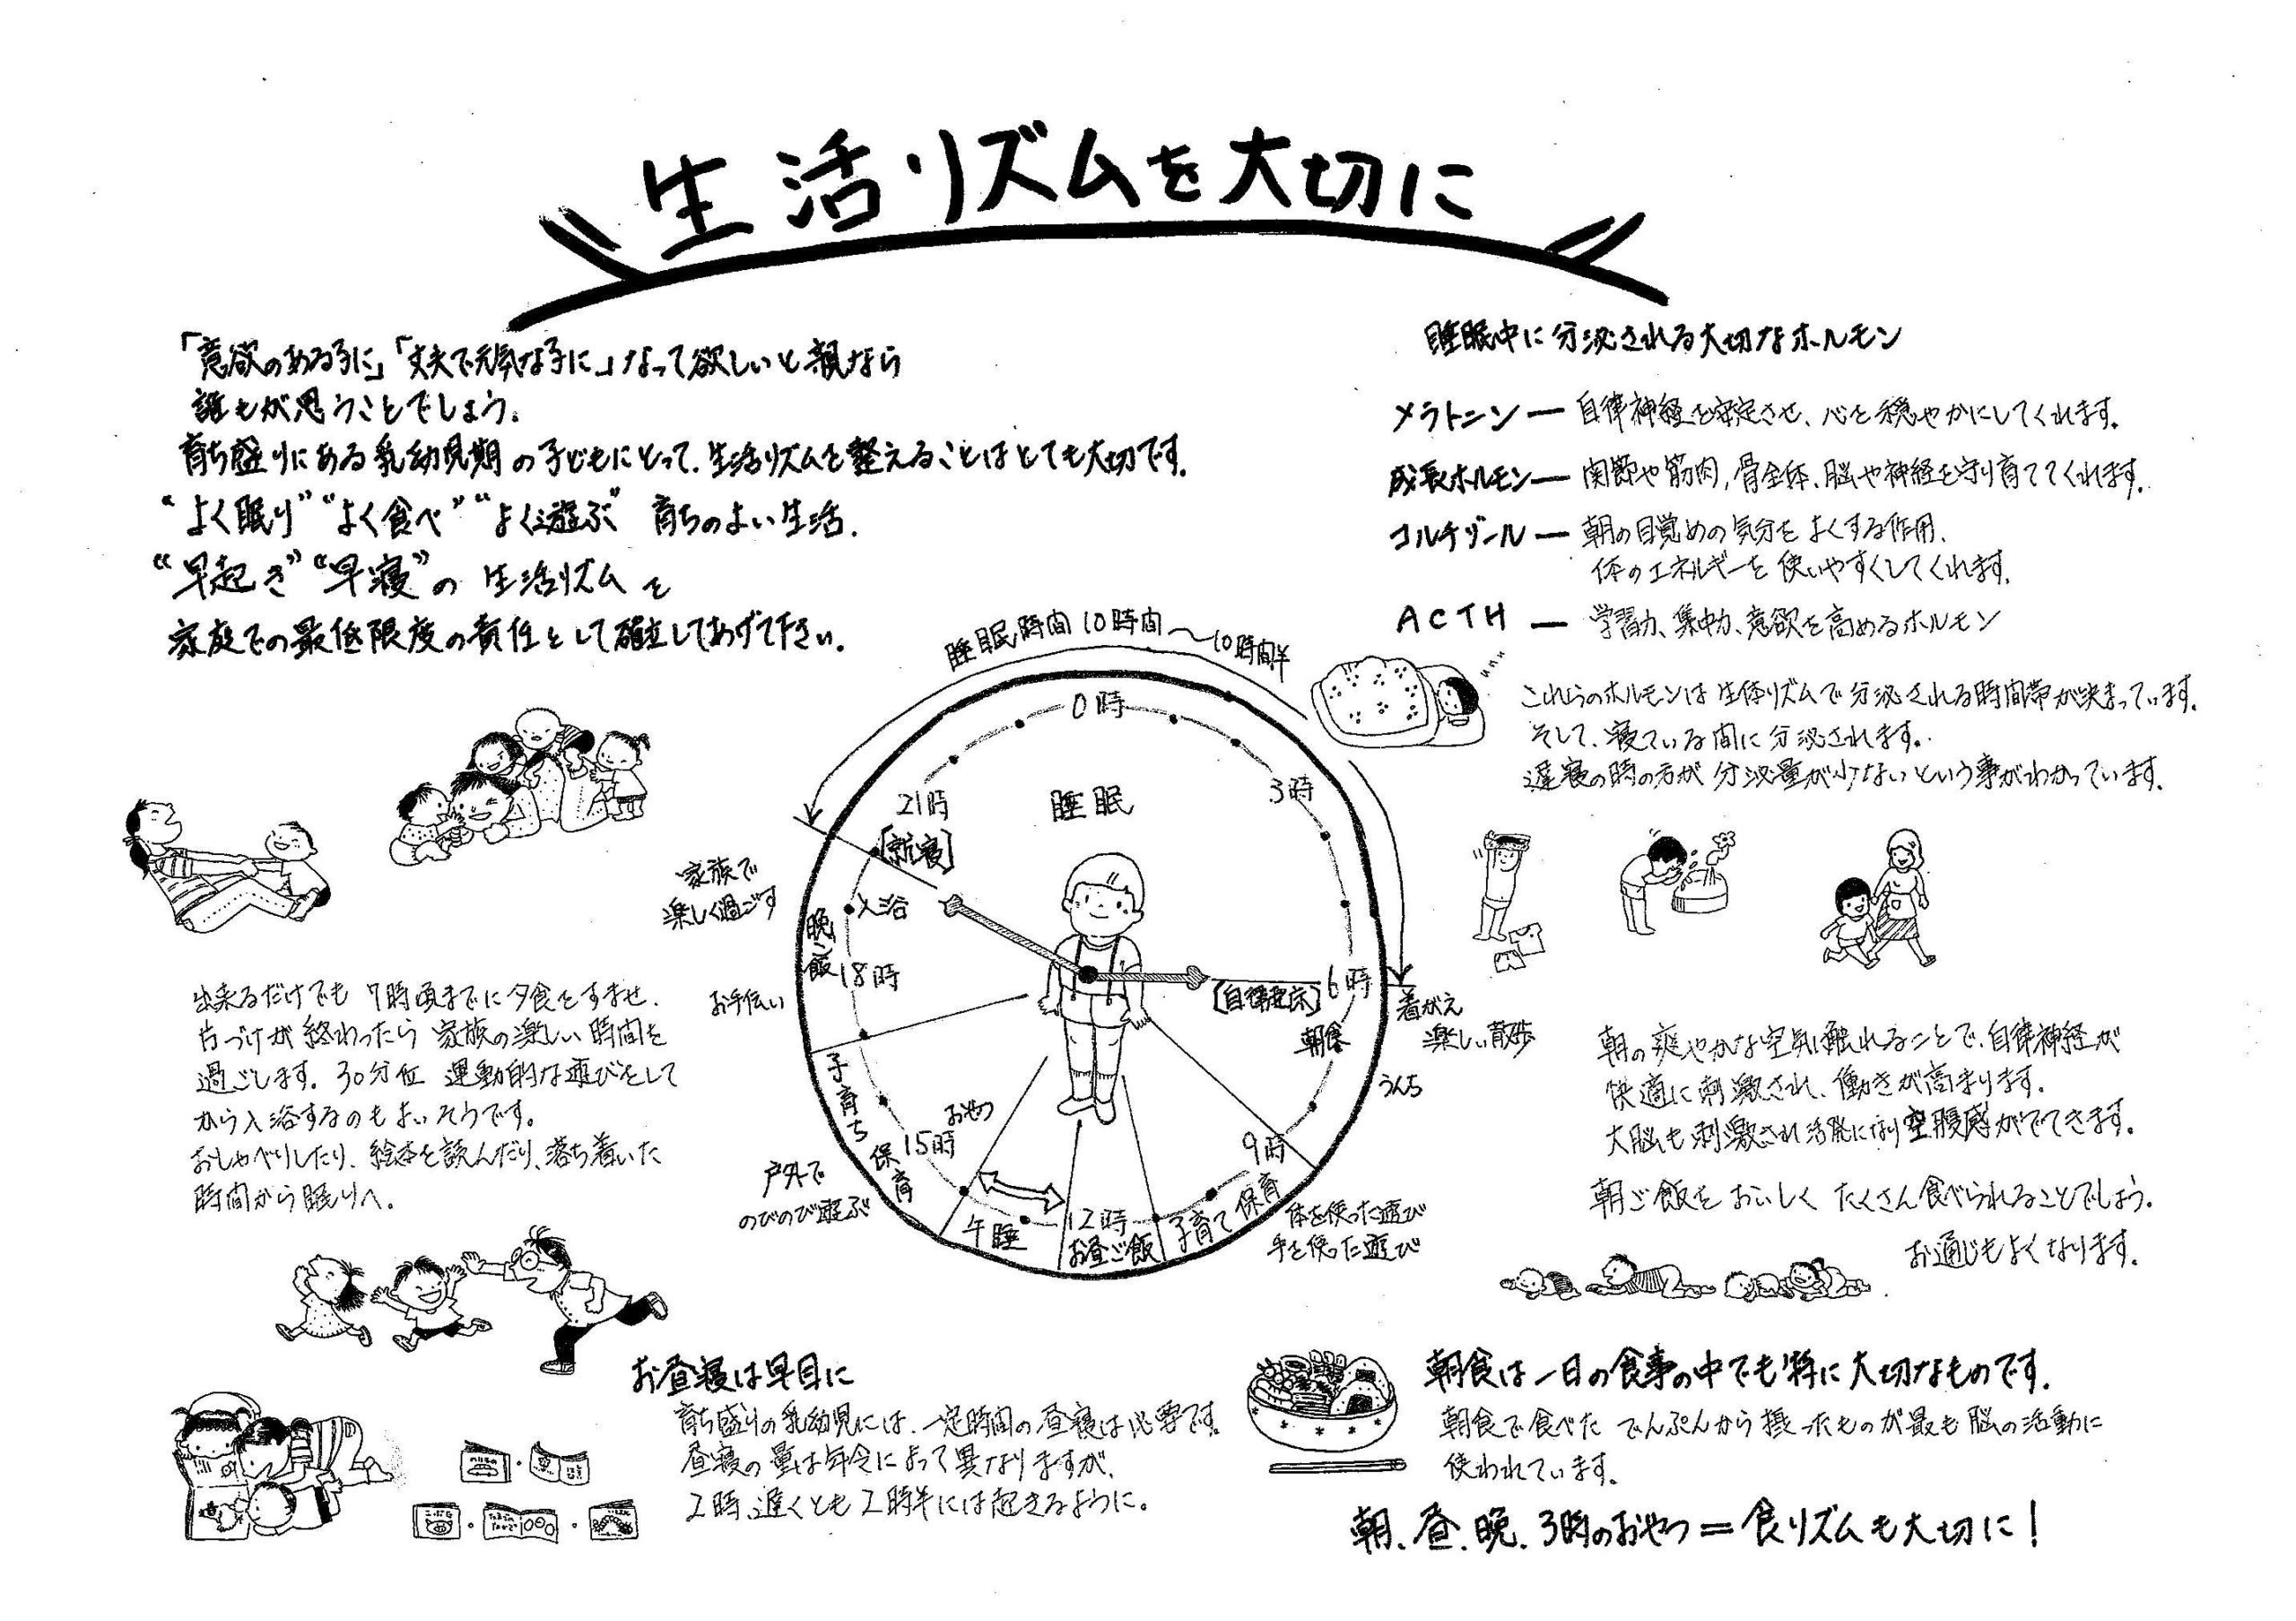 生活リズムを大切に
「意欲のある子に」「丈夫で元気な子に」なって欲しいと親なら
誰もが思うことでしょう。
育ち盛りにある乳幼児期の子どもにとって、生活リズムを整えることはとても大切です。
“よく眠り”“よく食べ”“よく遊ぶ” 育ちのよい生活、
“早起き”“早寝”の 生活リズムを
家庭での最低限度の責任として確立してあげて下さい。
睡眠中に分泌される大切なホルモン
メラトニン― 自律神経を安定させ、心を穏やかにしてくれます。
成長ホルモン― 関節や筋肉、骨全体、脳や神経を守り育ててくれます。
コルチゾール― 朝の目覚めの気分をよくする作用、
体のエネルギーを使いやすくしてくれます。
ACTH ― 学習力、集中力、意欲を高めるホルモン
これらのホルモンは生体リズムで分泌される時間帯が決まっています。
そして、寝ている間に分泌されます。
遅寝の時の方が分泌量が少ないという事がわかっています。
睡眠時間10時間〜10時間半
0時
3時
6時
9時
12時
15時
18時
21時
睡眠
[就寝]
入浴
晩ご飯
[自律起床]
朝食
子育て保育
お昼ご飯
午睡
おやつ
子育ち保育
家族で
楽しく過ごす
お手伝い
戸外で
のびのび遊ぶ
着がえ
楽しい散歩
うんち
体を使った遊び
手を使った遊び
出来るだけでも 7時頃までに夕食をすませ、
片づけが終わったら 家族の楽しい時間を
過ごします。30分位 運動的な遊びをして
から入浴するのもよいそうです。
おしゃべりしたり、絵本を読んだり、落ち着いた
時間から眠りへ。
朝の爽やかな空気に触れることで、自律神経が
快適に刺激され、働きが高まります。
大脳も刺激され活発になり空腹感がでてきます。
朝ご飯をおいしくたくさん食べられることでしょう。
お通じもよくなります。
お昼寝は早目に
育ち盛りの乳幼児には、一定時間の昼寝は必要です。
昼寝の量は年令によって異なりますが、
2時、遅くとも2時半には起きるように。
朝食は一日の食事の中でも特に大切なものです。
朝食で食べた でんぷんから摂ったものが最も脳の活動に
使われています。
朝、昼、晩、3時のおやつ＝食リズムも大切に！